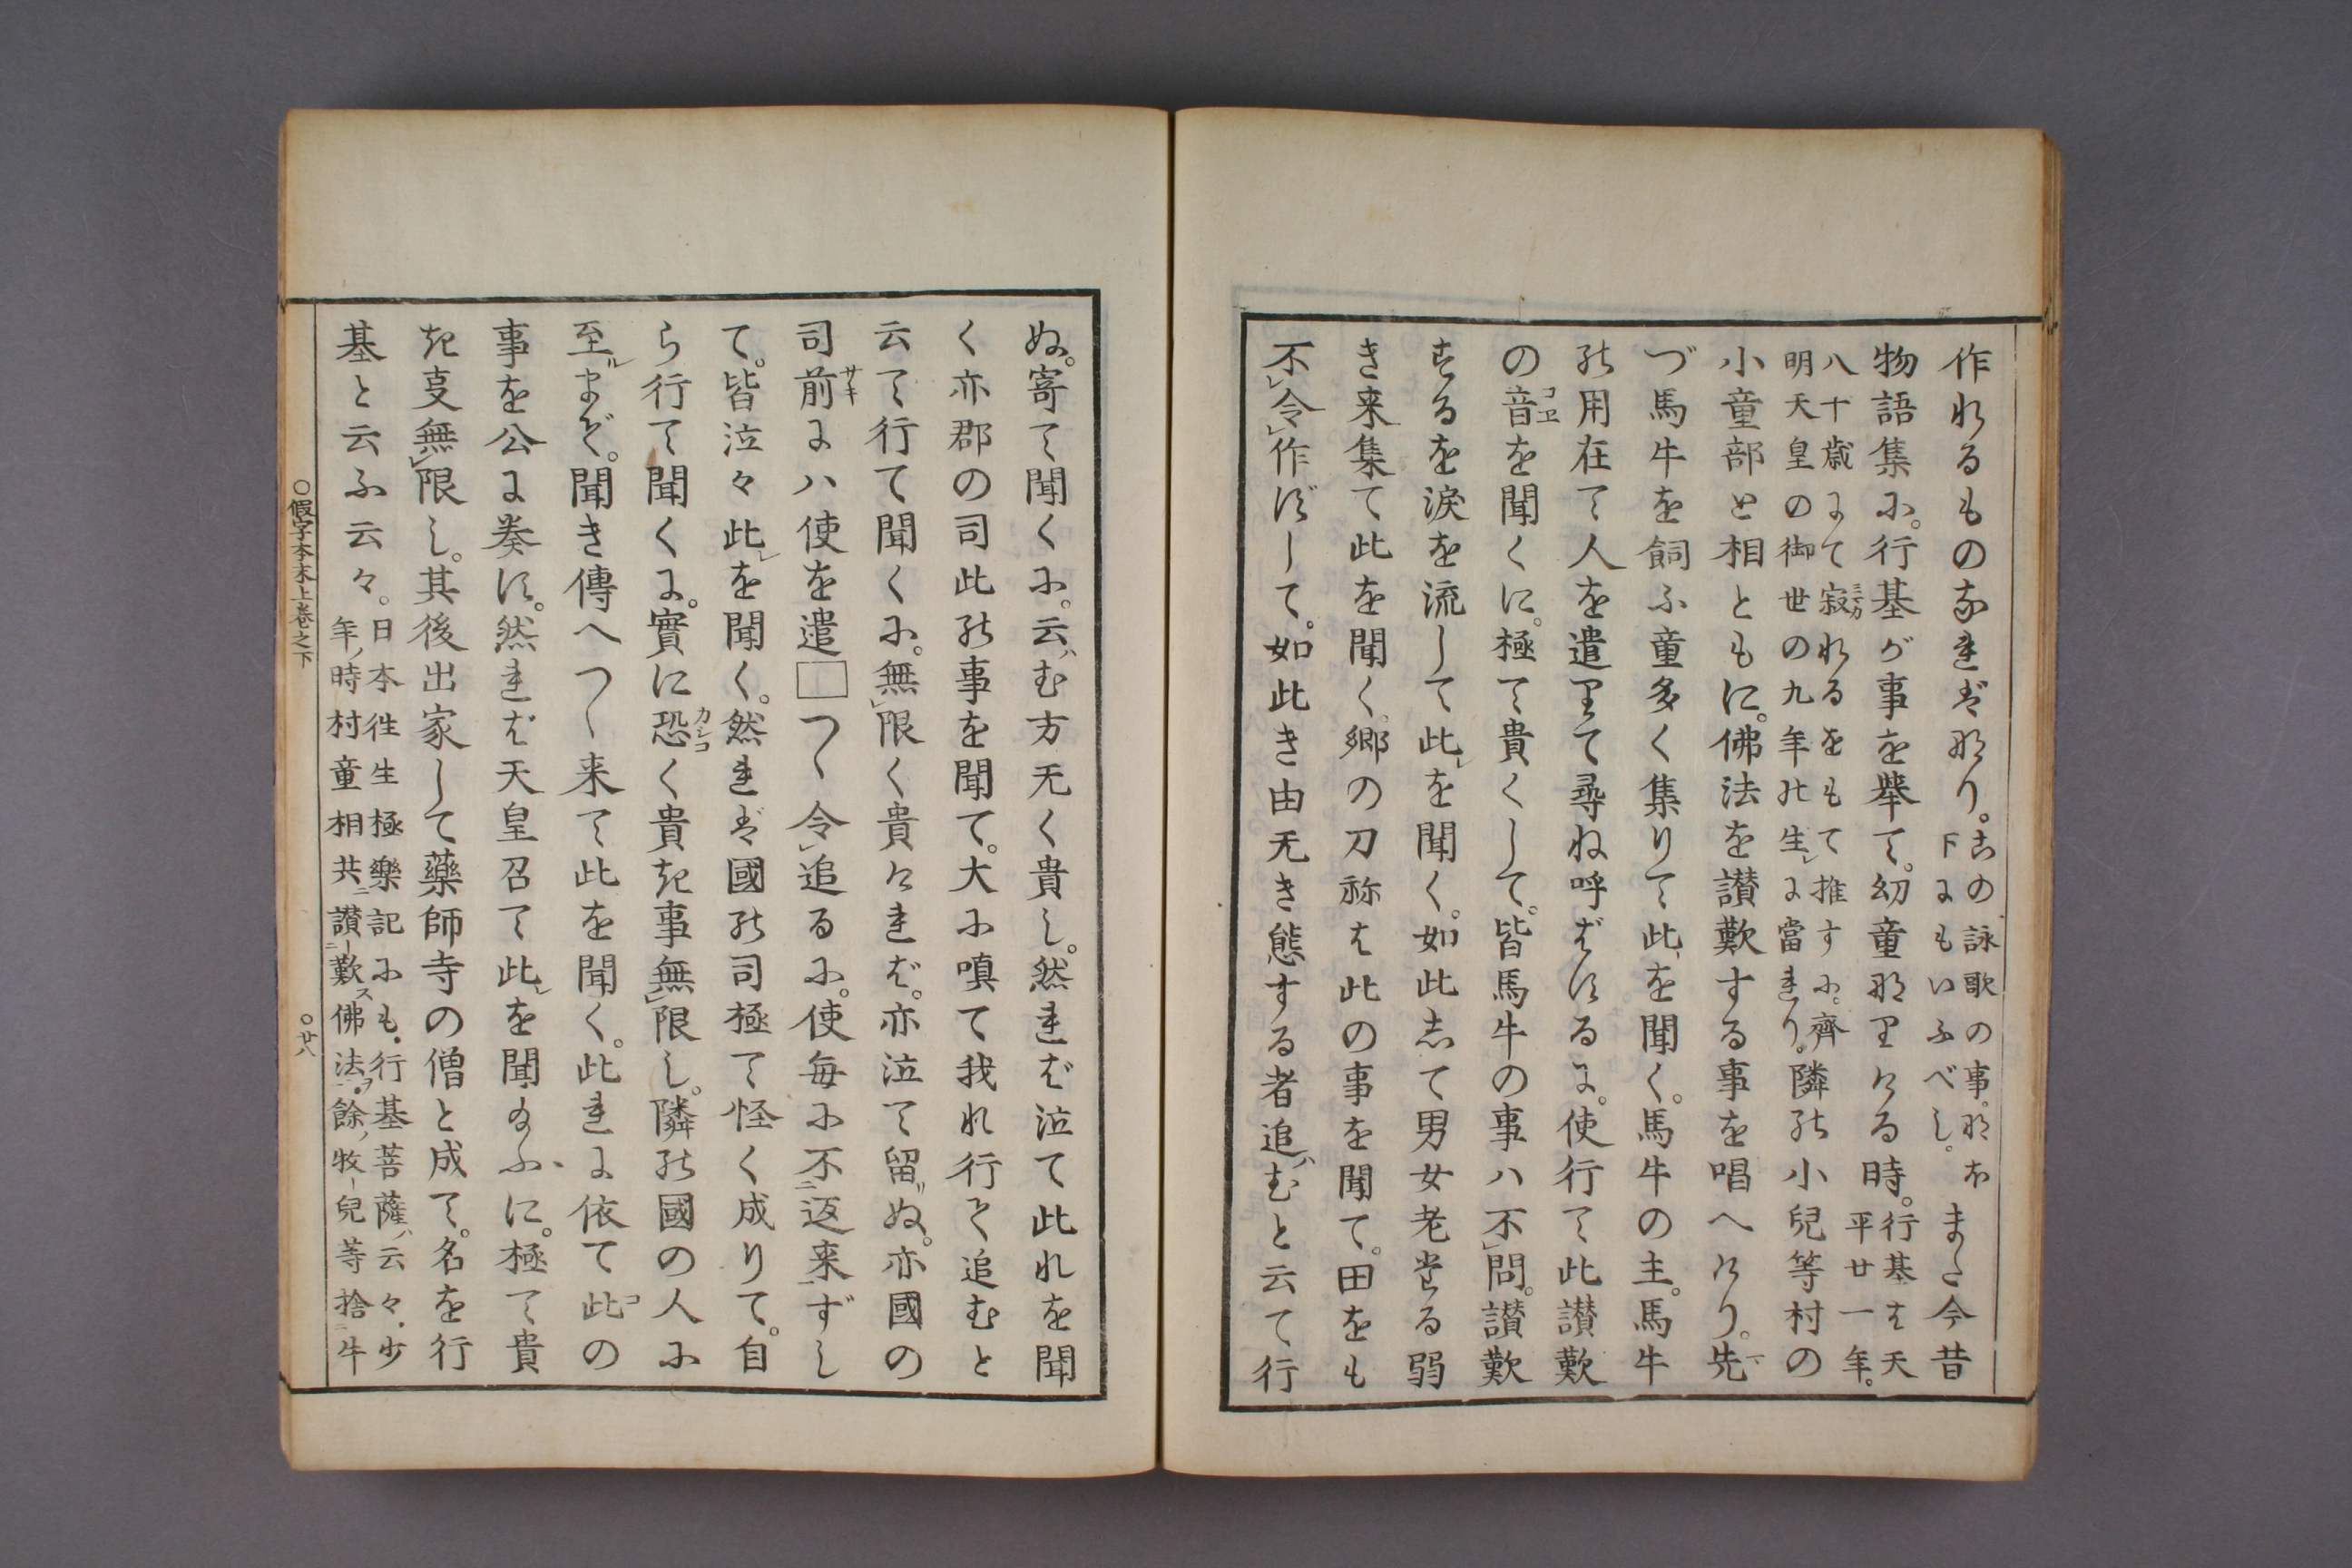 作れるものなればなり。古の詠歌の事。なほ下にもいふべし。また今昔
物語集に。行基が事を擧て。幼童なりける時。行基は天平廿一年。
八十歳にて寂れるをもて推すに。齊明天皇の御世の九年の生に當れり。隣の小兒等村の
小童部と相ともに。佛法を讃歎する事を唱へけり。先
づ馬牛を飼ふ童多く集りて此を聞く。馬牛の主。馬牛
の用在て人を遣りて尋ね呼ばするに。使行て此讃歎
の音を聞くに。極て貴くして。皆馬牛の事ハ不問。讃歎
するを淚を流して此を聞く。如此して男女老たる弱
き来集て此を聞く。郷の刀祢は此の事を聞て。田をも
不令作ずして。如此き由无き態する者追むと云て行
ぬ。寄て聞くに。云む方无く貴し。然れば泣て此れを聞
く亦郡の司此の事を聞て。大に嗔て我れ行て追むと
云て行て聞くに。無限く貴ければ。亦泣て留ぬ。亦國の
司前にハ使を遣□つゝ令追るに。使毎に不返来ずし
て。皆泣々此を聞く。然れば國の司極て怪く成りて。自
ら行て聞くに。實に恐く貴き事無限し。隣の國の人に
至まで。聞き傳へつゝ来て此を聞く。此れに依て此の
事を公に奏す。然れば天皇召て此を聞給ふに。極て貴
き叓無限し。其後出家して藥師寺の僧と成て。名を行
基と云ふ云々。日本徃生極樂記にも。行基菩薩云々。少年時村童相共讃歎佛法。餘牧兒等捨牛
○假字本末上巻之下
○廿八